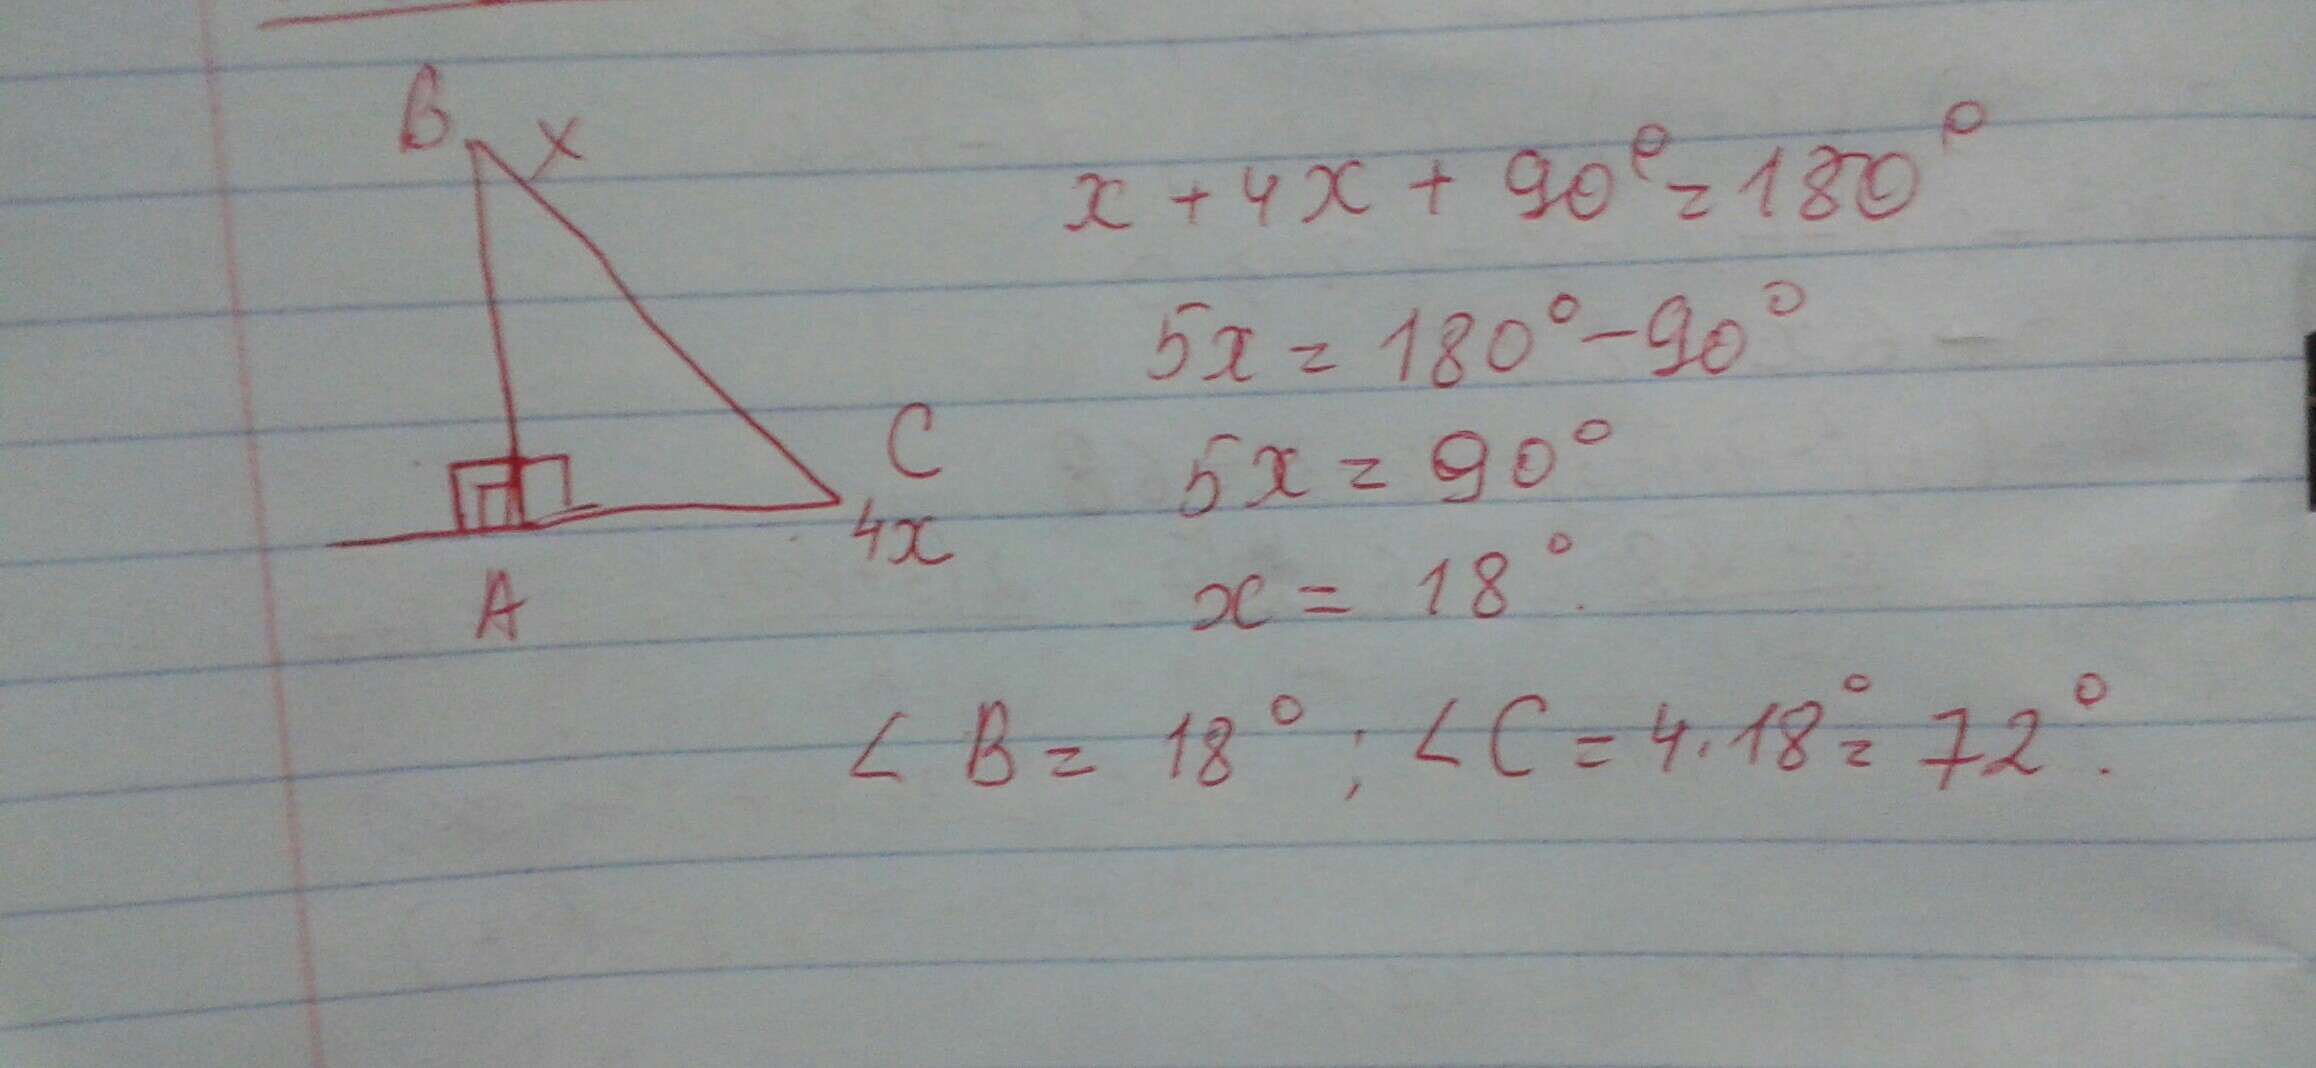 B x
x + 4x + 90° = 180°
5x = 180° - 90°
C
5x = 90°
4x
x = 18°.
A
∠ B = 18° ; ∠ C = 4 . 18° = 72° .